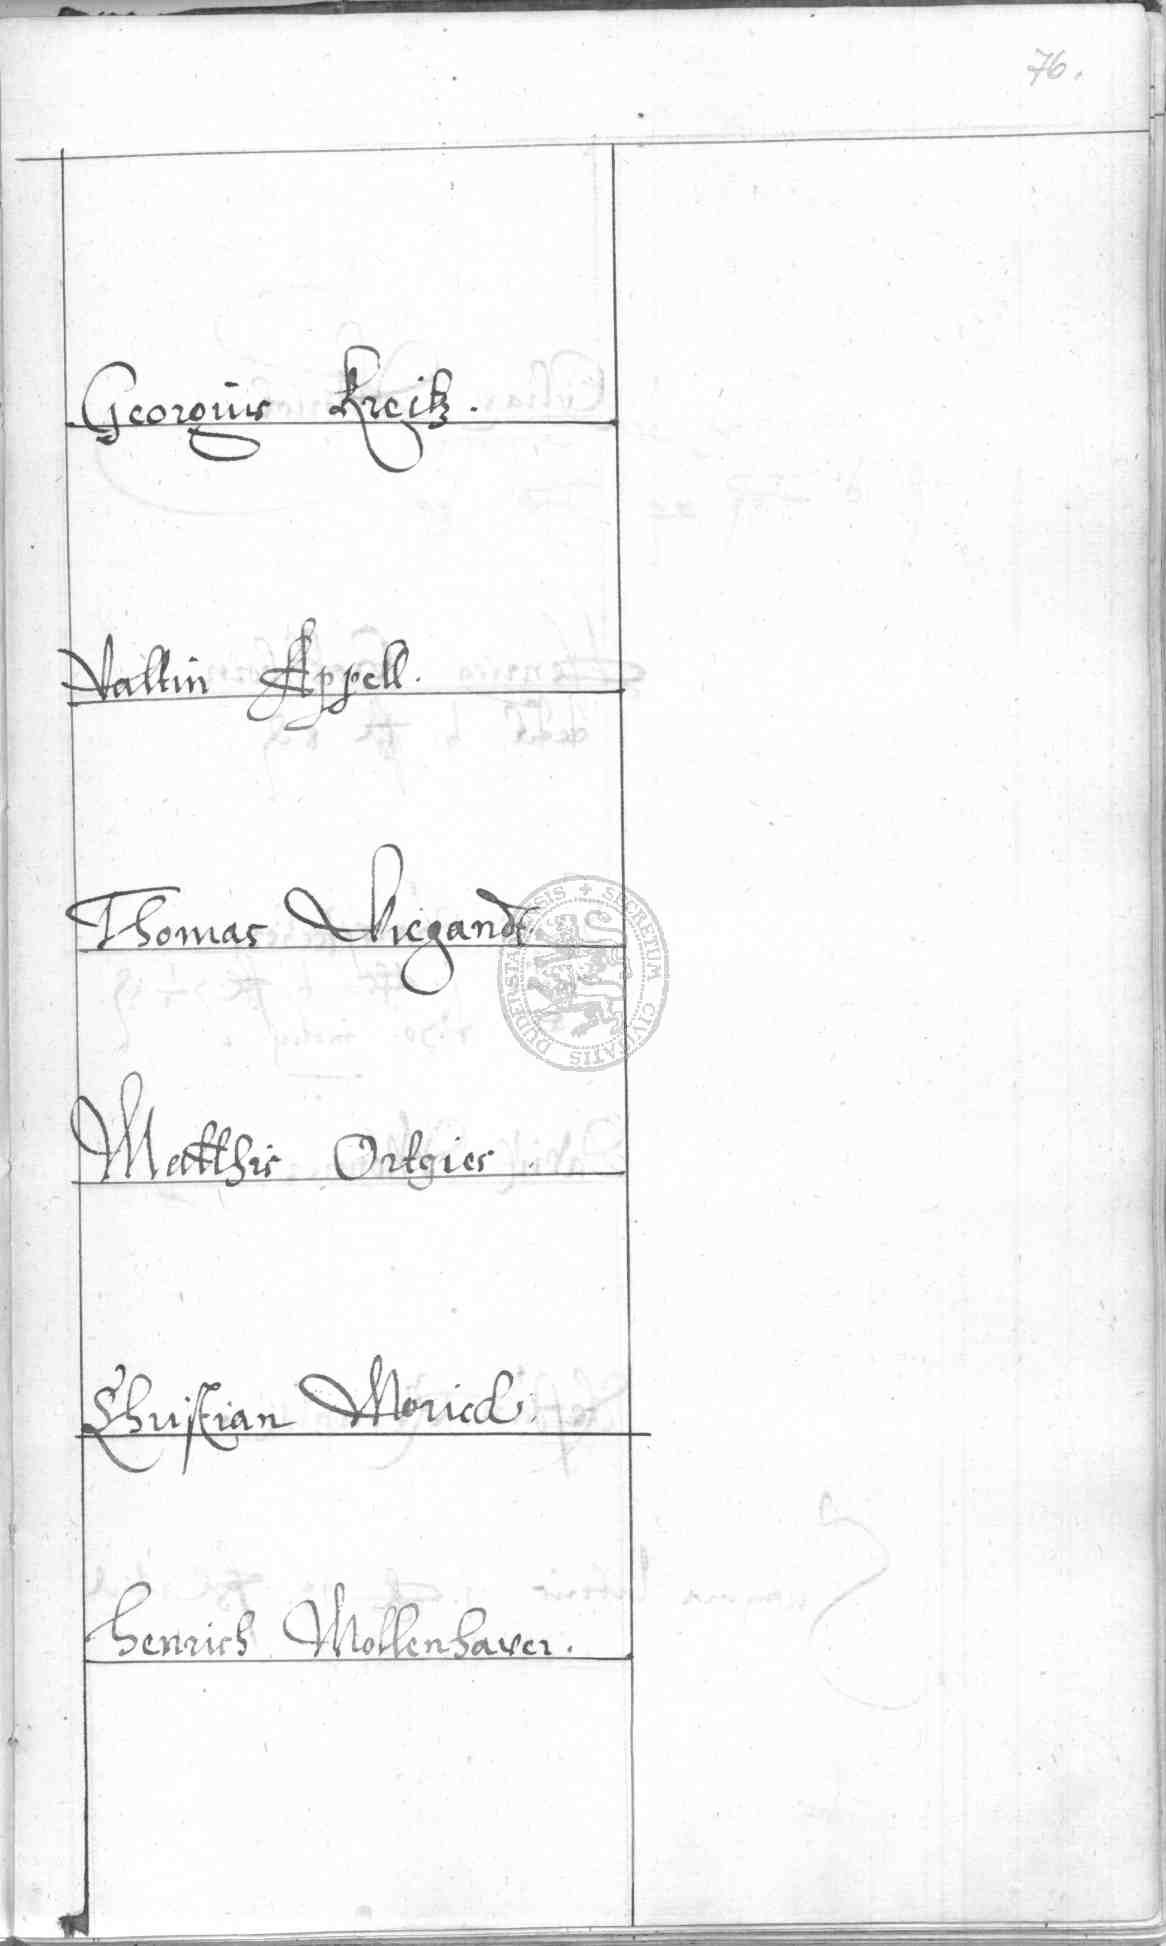 76.
Georgius Kreitz.
Valtin Appell.
Thomas Wiegandt.
SECRETUM CIVITATIS DUDERSTADENSIS
Matthis Ortgies.
Christian
Henrich Mollenhawer.